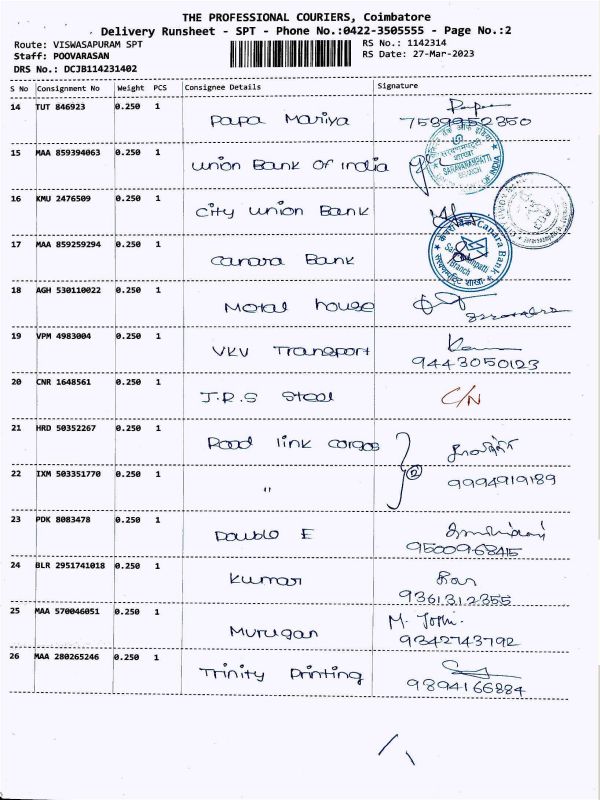 THE PROFESSIONAL COURIERS, Coimbatore
Delivery Runsheet - SPT - Phone No.:0422-3505555 - Page No.:2
Route: VISWASAPURAM SPT
RS No.: 1142314
Staff: POOVARASAN
RS Date: 27-Mar-2023
DRS No.: DCJB114231402
S No Consignment No Weight PCS Consignee Details Signature
14 TUT 846923 0.250 1 Papa Mariya
7539952350
15 MAA 859394063 0.250 1 Union Bank Of India
SARAVANAMPATTI
BRANCH
16 KMU 2476509 0.250 1 City Union Bank
17 MAA 859259294 0.250 1 Canara Bank
Canara Bank
Branch
18 AGH 530110022 0.250 1 Motal house
19 VPM 4983004 0.250 1 VKV Transport
9443050123
20 CNR 1648561 0.250 1 J.R.S Steel C/N
21 HRD 50352267 0.250 1 Road link cargos
2
22 IXM 503351770 0.250 1 " 9994919189
23 PDK 8083478 0.250 1 Double E
9500968415
24 BLR 2951741018 0.250 1 Kumar
9361312355
25 MAA 570046051 0.250 1 Murugan M. Jothi.
9342743792
26 MAA 280265246 0.250 1 Trinity Printing
9894166884